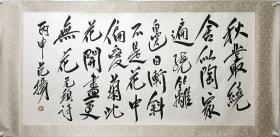 秋叢繞
舍似陶家
遍繞籬
邊日漸斜
不是花中
偏愛菊此
花開盡更
無花 元稹詩
丙申 范